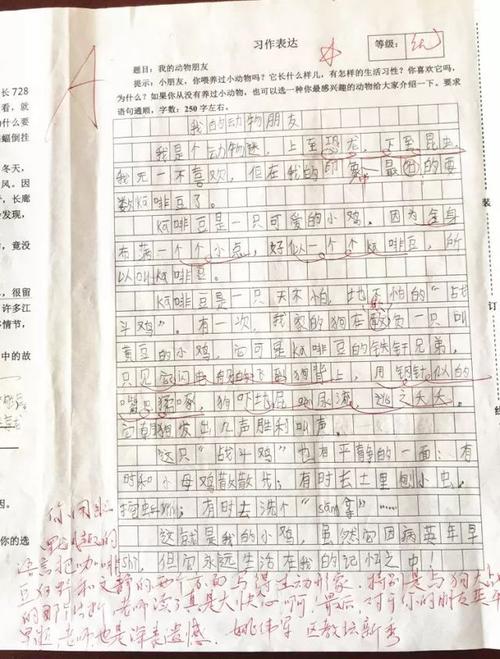 习作表达
等级:
题目:我的动物朋友
提示:小朋友,你喂养过小动物吗?它长什么样儿,有怎样的生活习性?你喜欢它吗,
为什么?如果你从没有养过小动物,也可以选一种你最感兴趣的动物给大家介绍一下。要求
语句通顺,字数:250字左右。
我的动物朋友
我是个动物迷,上至恐龙,下至昆虫,
我无一不喜欢,但在我的印象最 的要
数ka啡豆了。
ka啡豆是一只可爱的小鸡。因为全身
布满一个个小点,好似一个个ka啡豆,所
以叫ka啡豆。
ka啡豆是一只天不怕,地不怕的“战
斗鸡”。有一次,我家的狗在欺负一只叫
黄豆的小鸡,它可是ka啡豆的铁杆兄弟。
只见它闪电般的飞到狗背上,用钢针似的
嘴 啄,狗吓 屁 尿 逃之夭夭。
它 狗发出几声胜利叫声。
这只“战斗鸡”也有平静的一面:有
时和小母鸡散散步;有时去土里刨小虫,
有时去洗个“
这就是我的小鸡,虽然它因病英年早
shi,但它永远生活在我的记忆之中!
A
长 728
看,就
为什么要
蝙蝠倒挂
冬天,
风。因
,长廊
发现,
竟没
,很留
许多江
情节,
中的故
你的选
装
订
线
语言把咖啡
豆 和文静的两个方面写得生动形象,特别是与狗大战
的那个片断,老师读了真是大快人心啊!最后,对于你的朋友英年
早逝,老师也是深表遗憾。 姚伟军 区教坛新秀